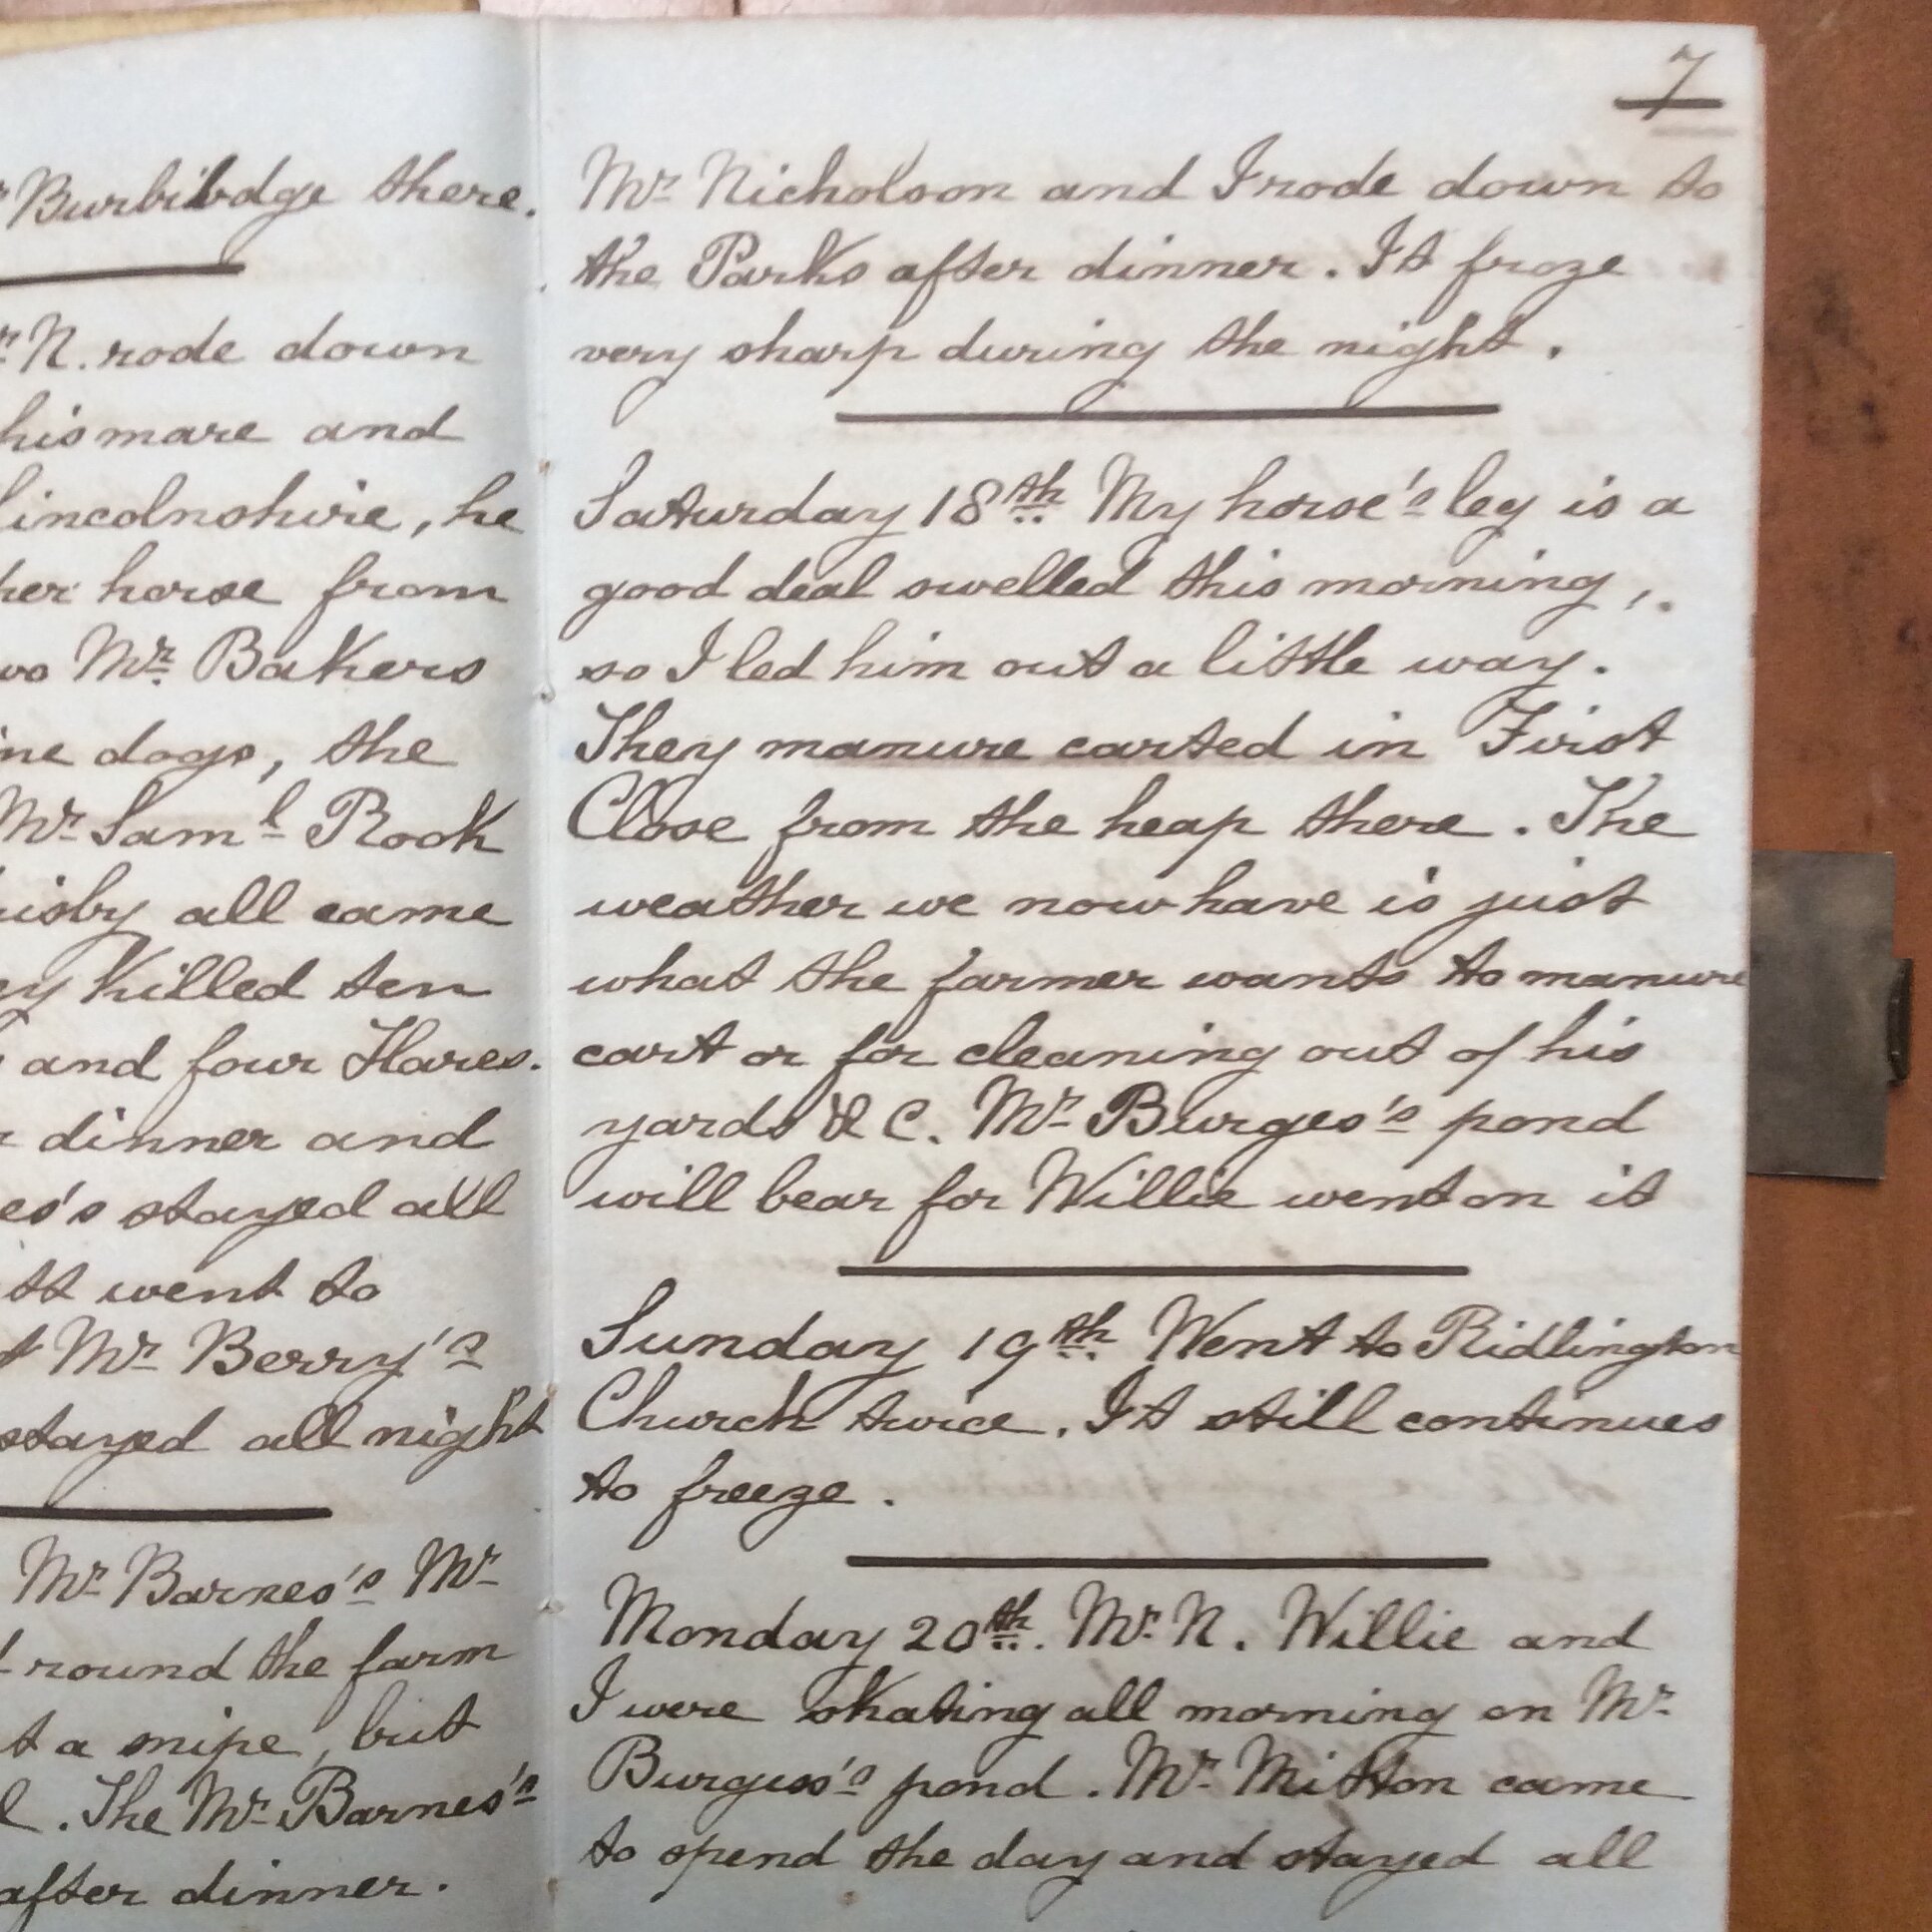 Burbibdge there.
N. rode down
his mare and
Lincolnshire, he
her horse from
Mr. Bakers
dogs, the
Mr Saml Rook
all came
killed ten
and four Hares.
dinner and
stayed all
went to
Mr Berry's
stayed all night
Mr Barnes's Mr
round the farm
a snipe, but
. The Mr Barnes's
after dinner.
7
Mr Nicholson and I rode down to
the Parks after dinner. It froze
very sharp during the night.
Saturday 18th My horse's leg is a
good deal swelled this morning,
so I led him out a little way.
They manure carted in First
Close from the heap there. The
weather we now have is just
what the farmer wants to manure
cart or for cleaning out of his
yards & C. Mr Burges's pond
will bear for Willie went on it
Sunday 19th. Went to Ridlington
Church twice. It still continues
to freeze.
Monday 20th. Mr. N. Willie and
I were skating all morning on Mr.
Burgess's pond. Mr. Mitton came
to spend the day and stayed all